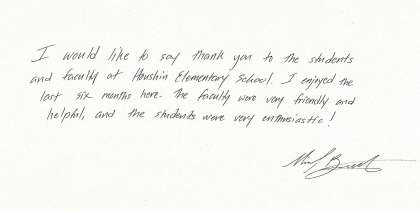 I would like to say thank you to the students
and faculty at Houshin Elementary School. I enjoyed the
last six months here. The faculty were very friendly and
helpful, and the students were very enthusiastic!